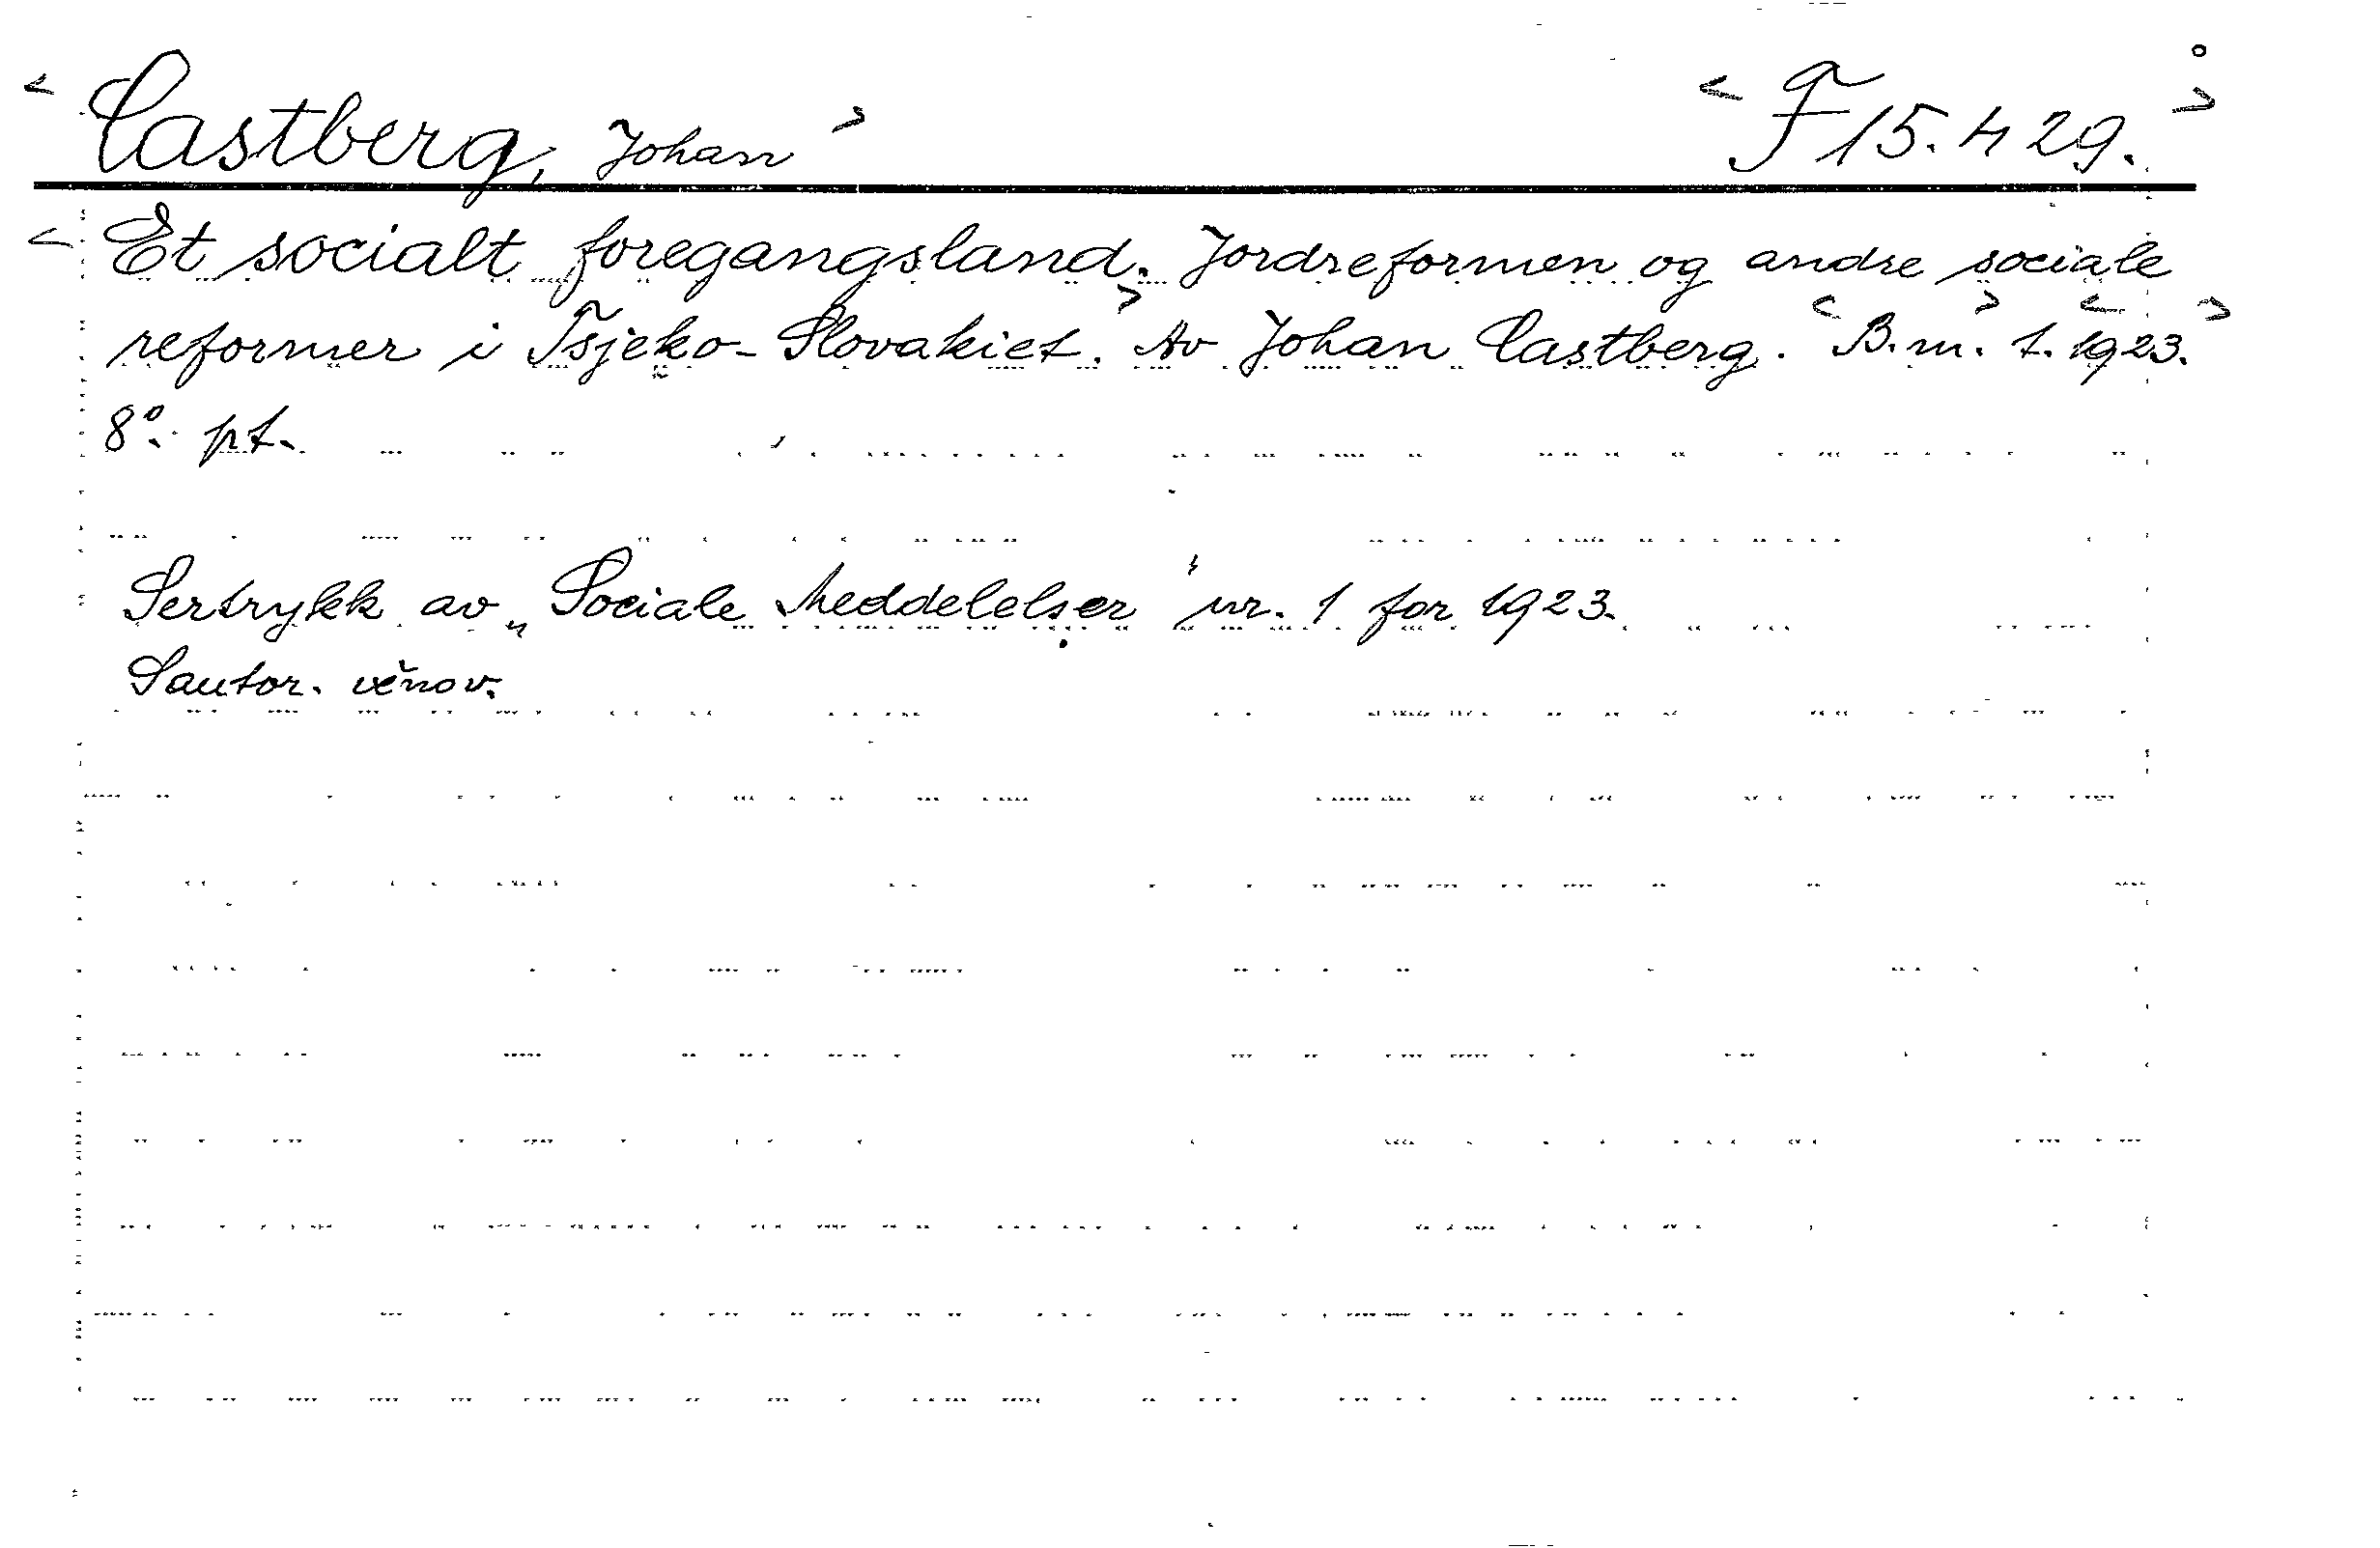 < Castberg, Johan > < F 15.429. >
< Et socialt foregangsland. Jordreformen og andre sociale
reformer i Tsjeko-Slovakiet. > Av Johan Castberg. < B.m. > t. < 1923. >
8°. pt.
Sertrykk av „Sociale Meddelelser" nr. 1 for 1923.
S autor. věnov.